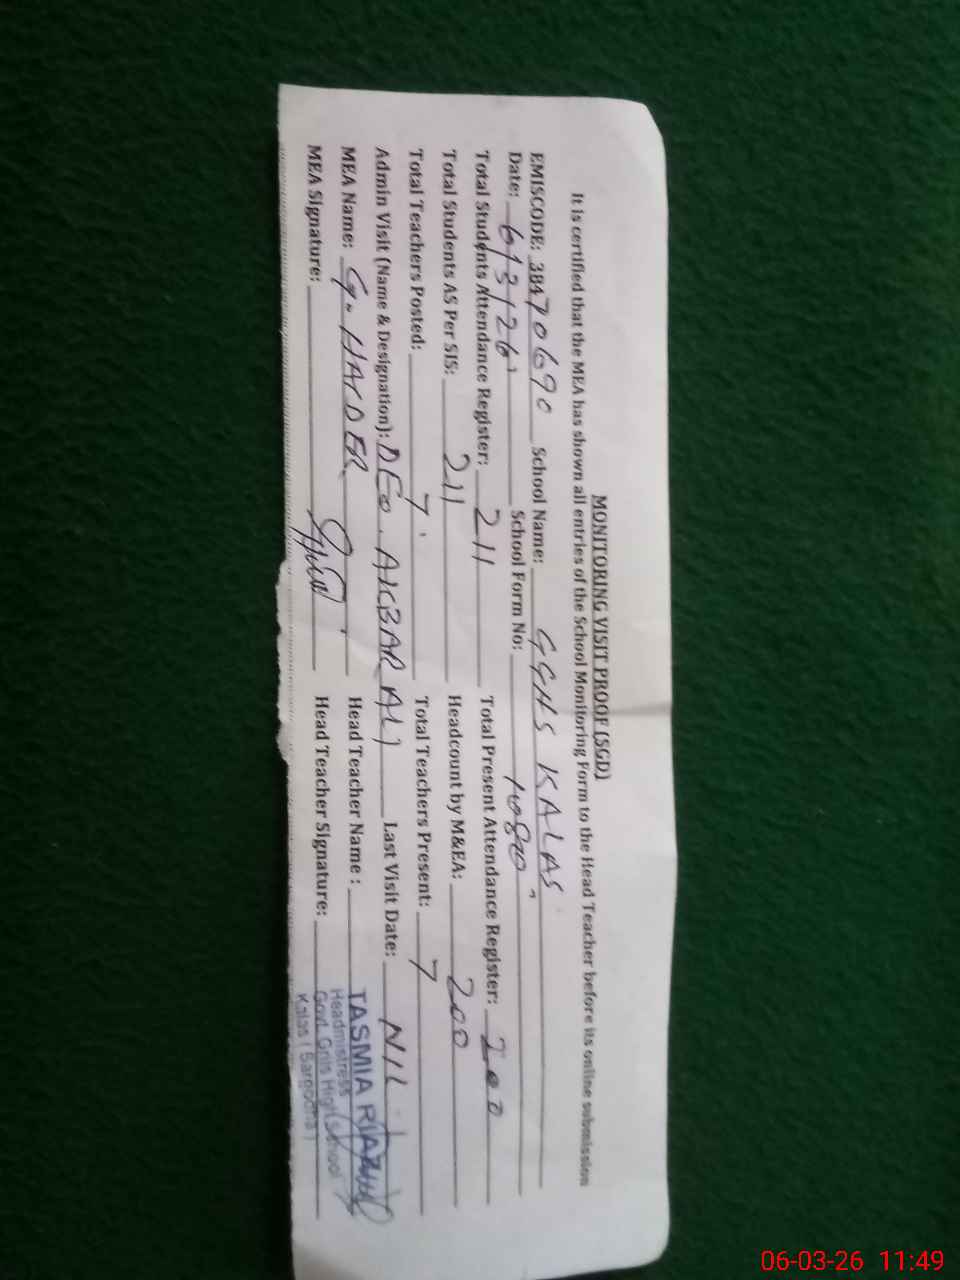 MONITORING VISIT PROOF (SGD)
It is certified that the MEA has shown all entries of the School Monitoring Form to the Head Teacher before its online submission
EMISCODE: 38470690 School Name: GGHS KALAS
Date: 6/3/26 School Form No:
Total Students Attendance Register: 211 Total Present Attendance Register: 200
Total Students AS Per SIS: 211 Headcount by M&EA: 200
Total Teachers Posted: 7 Total Teachers Present: 7
Admin Visit (Name & Designation): DEO. AKBAR ALI Last Visit Date: NIL
MEA Name: G. HAIDER Head Teacher Name :
MEA Signature: Head Teacher Signature:
TASMIA RIAZ
Headmistress
Govt. Grils High School
Kalas (Sargodha)
06-03-26 11:49